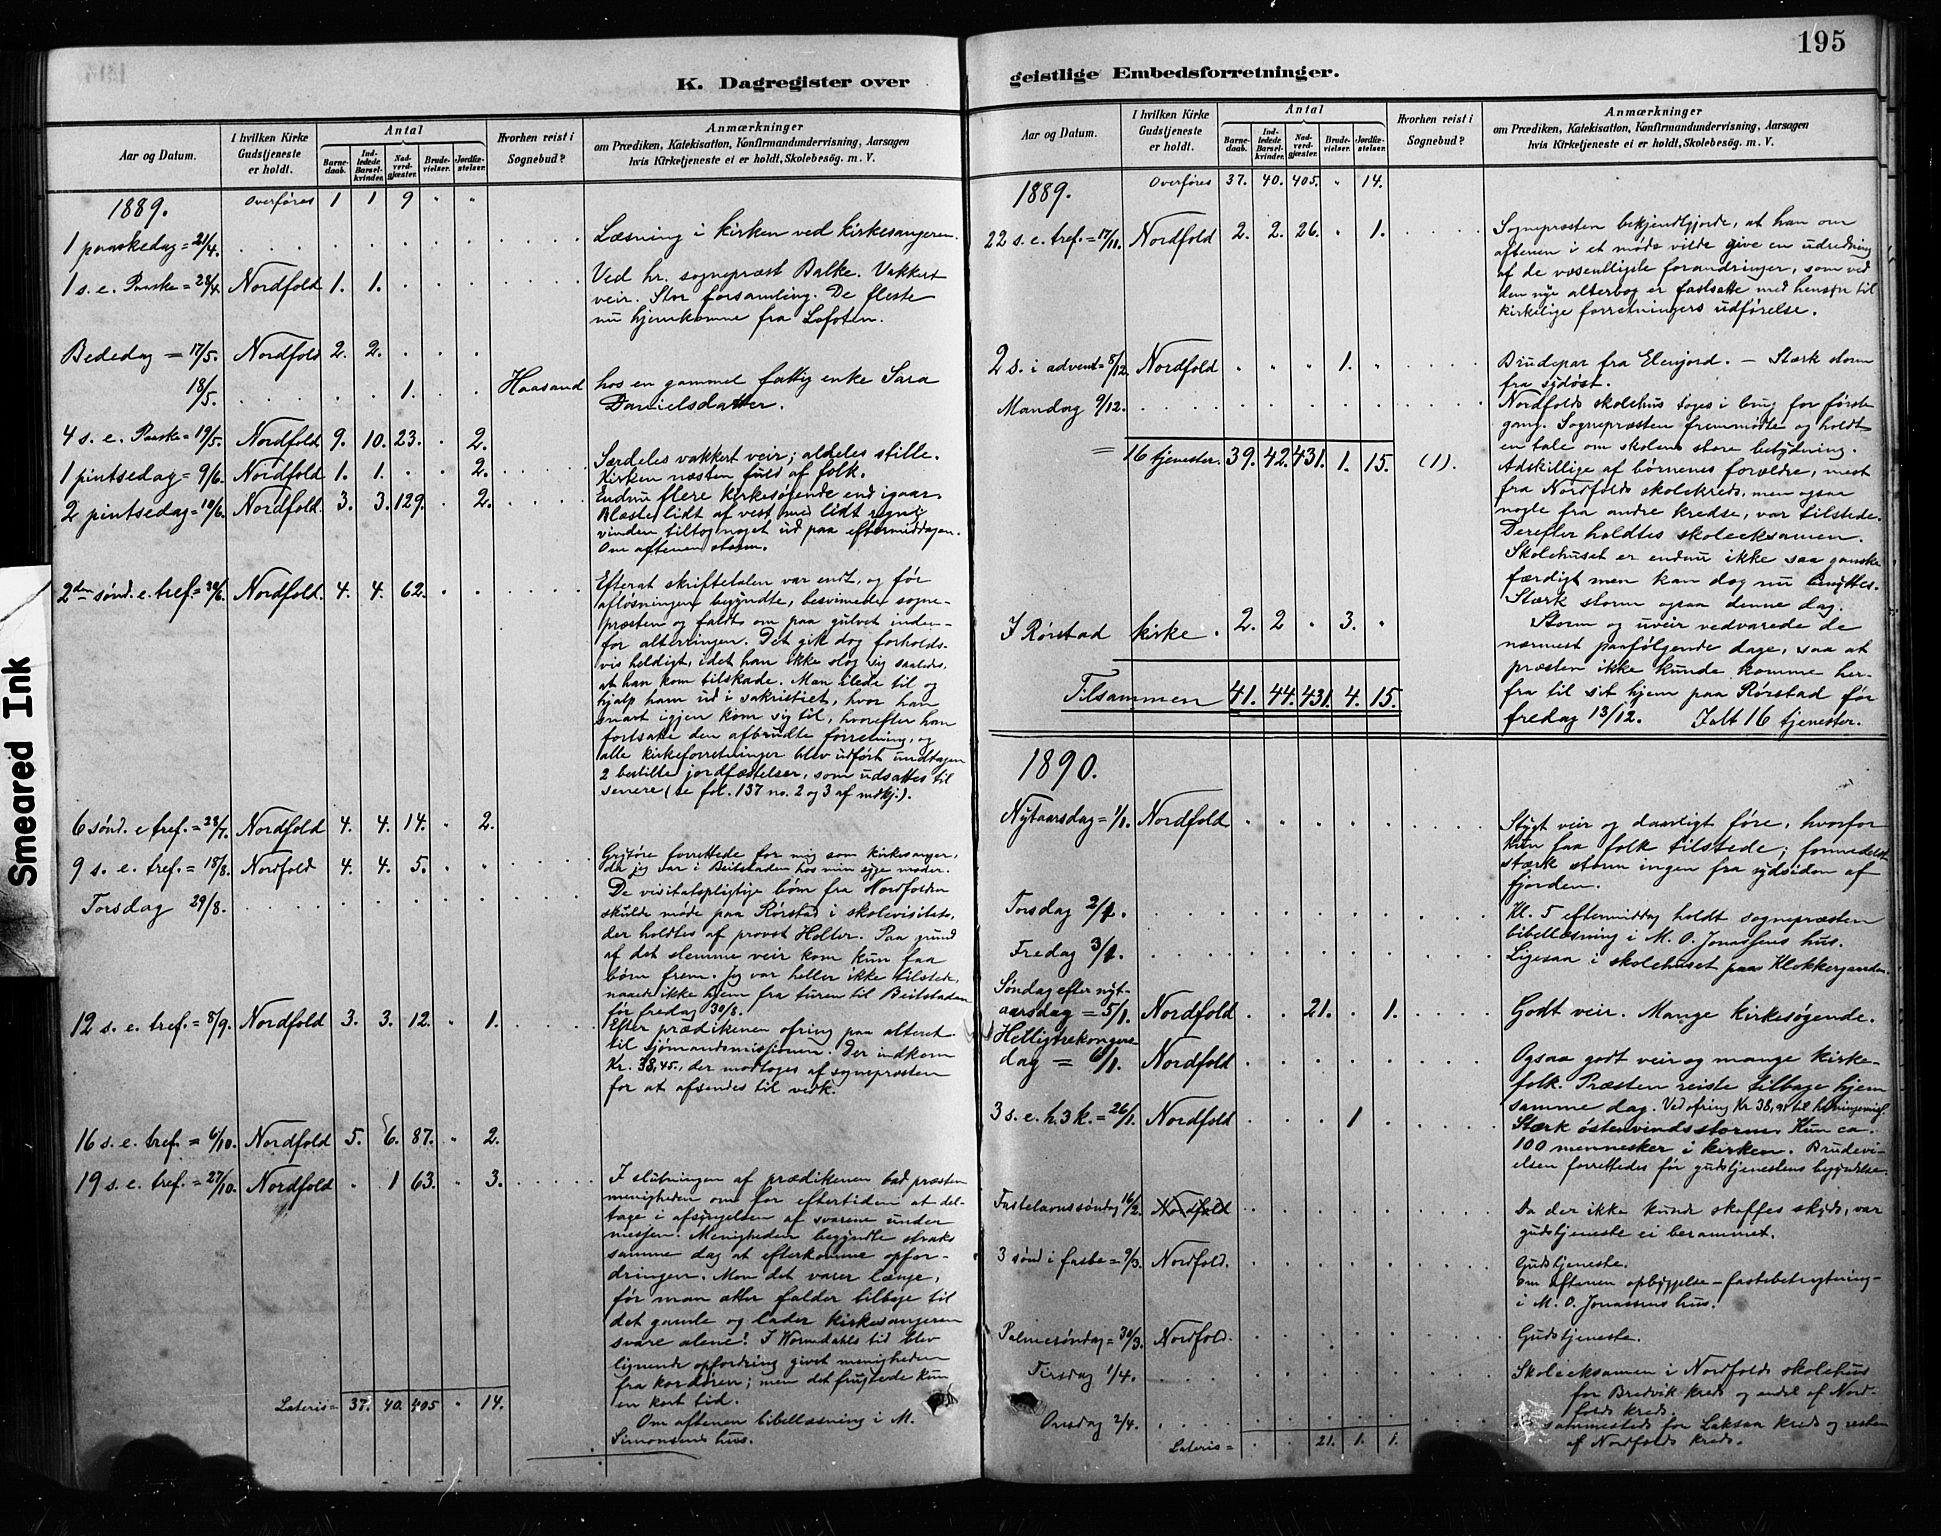 195
K. Dagregister over
geistlige Embedsforretninger.
Smeared Ink
Aar og Datum.
I hvilken Kirke Gudstjeneste er holdt.
Antal
Barnedaab.
Indledede Barselkvinder.
Nadverdgjæster.
Brudevielser.
Jordfæstelser.
Hvorhen reist i Sognebud?
Anmærkninger
om Prædiken, Katekisation, Konfirmandundervisning, Aarsagen
hvis Kirketjeneste ei er holdt, Skolebesøg. m. V.
1889. Overføres 1 1 9 " "
1 paaskedag = 21/4. Læsning i kirken ved kirkesangeren.
1 s. e. Paaske = 28/4 Nordfold 1. 1. Ved hr. sognepræst Balke. Vakkert
veir. Stor forsamling. De fleste
nu hjemkomne fra Lofoten.
Bededag = 17/5. Nordfold 2. 2.
18/5. 1. Haasand hos en gammel fattig enke Sara
Danielsdatter.
4 s. e. Paaske = 19/5. Nordfold 9. 10. 23. 2.
Særdeles vakkert veir; aldeles stille.
1 pintsedag = 9/6. Nordfold 1. 1. 2. Kirken næsten fuld af folk.
2 pintsedag = 10/6. Nordfold. 3. 3. 129. 2. Endnu flere kirkesøgende end igaar.
Blæste lidt af vest med lidt regn;
vinden tiltog noget ud paa eftermiddagen.
Om aftenen storm.
2den sønd. e. tref. = 30/6. Nordfold. 4. 4. 62. Efterat skriftetalen var endt, og før
afløsningen begyndte, besvimede sogne-
præsten og faldt om paa gulvet inden-
for alterringen. Det gik dog forholds-
vis heldigt, idet han ikke slog sig saaledes,
at han kom tilskade. Man ilede til og
hjalp ham ud i sakristiet, hvor han
snart igjen kom sig til, hvorefter han
fortsatte den afbrudte forretning, og
alle kirkeforretninger blev udført undtagen
2 bestilte jordfæstelser, som udsattes til
senere (se fol. 137 no. 2 og 3 af mdkj.).
6 sønd. e tref. = 28/7. Nordfold 4. 4. 14. 2.
9 s. e. tref. = 18/8. Nordfold 4. 4. 5. " Grytøre forrettede for mig som kirkesanger,
da jeg var i Beitstaden hos min syge moder.
Torsdag 29/8. De visitatspligtige børn fra Nordfolden
skulde møde paa Rørstad i skolevisitats,
der holdtes af provst Holter. Paa grund
af det slemme veir kom kun faa
børn frem. Jeg var heller ikke tilstede,
naaede ikke hjem fra turen til Beitstaden
før fredag 30/8.
12 s. e. tref. = 8/9. Nordfold 3. 3. 12. 1. Efter prædikenen ofring paa alteret
til sjømandsmissionen. Der indkom
Kr. 38,45., der modtoges af sognepræsten
for at afsendes til vedk.
16 s. e. tref. = 6/10. Nordfold 5. 6. 87. 2.
19 s. e. tref. = 27/10. Nordfold " 1 63. 3. I slutningen af prædikenen bad præsten
menigheden om for eftertiden at del-
tage i afsyngelsen af svarene under
messen. Menigheden begyndte straks
samme dag at efterkomme opfor-
dringen. Mon det varer længe,
før man atter falder tilbage til
det gamle og lader kirkesangeren
svare alene? I Wormdahls tid blev
lignende opfordring givet menigheden
fra kordøren; men det frugtede kun
en kort tid.
Lateris = 37. 40. 405 " 14.
Om aftenen bibellæsning i M.
Simonsens hus.
Aar og Datum.
I hvilken Kirke Gudstjeneste er holdt.
Antal
Barnedaab.
Indledede Barselkvinder.
Nadverdgjæster.
Brudevielser.
Jordfæstelser.
Hvorhen reist i Sognebud?
Anmærkninger
om Prædiken, Katekisation, Konfirmandundervisning, Aarsagen
hvis Kirketjeneste ei er holdt, Skolebesøg. m. V.
1889. Overføres 37. 40. 405. " 14.
22 s. e. tref. = 17/11. Nordfold 2. 2. 26. " 1. Sognepræsten bekjendtgjorde, at han om
aftenen i et møde vilde give en udredning
af de væsentligste forandringer, som ved
den nye alterbog er fastsatte med hensyn til
kirkelige forretningers udførelse.
2 s. i advent = 8/12. Nordfold " " " 1. " Brudepar fra Elvfjord. – Stærk storm
fra sydøst.
Mandag 9/12. Nordfolds skolehus toges i brug for første
gang. Sognepræsten fremmødte og holdt
en tale om skolens store betydning.
= 16 tjenester. 39. 42. 431. 1. 15. (1). Adskillige af børnenes forældre, mest
fra Nordfolds skolekreds, men ogsaa
nogle fra andre kredse, var tilstede.
Derefter holdtes skoleeksamen.
Skolehuset er endnu ikke saa ganske
færdigt men kan dog nu benyttes.
Stærk storm ogsaa denne dag.
I Rørstad kirke. 2. 2 " 3. " Storm og uveir vedvarede de
nærmest paafølgende dage, saa at
præsten ikke kunde komme her-
fra til sit hjem paa Rørstad før
Tilsammen 41. 44. 431. 4. 15. fredag 13/12. Ialt 16 tjenester.
1890.
Nytaarsdag = 1/1. Nordfold Stygt veir og daarligt føre, hvorfor
kun faa folk tilstede; formedelst
stærk storm ingen fra sydsiden af
fjorden.
Torsdag 2/1. Kl. 5 eftermiddag holdt sognepræsten
bibellæsning i M. O. Jonassens hus.
Fredag 3/1. Ligesaa i skolehuset paa Klokkergaarden.
Søndag efter nyt-
aarsdag = 5/1. Nordfold 21. 1. Godt veir. Mange kirkesøgende.
Helligtrekongers
dag = 6/1. Nordfold Ogsaa godt veir og mange kirke-
folk. Præsten reiste tilbage hjem
samme dag. Ved ofring Kr 38,
3 s. e. h. 3 k. = 26/1. Nordfold 1 Stærk østenvindsstorm. Kun ca.
100 mennesker i kirken. Brudevi-
elsen forrettedes før gudstjenestens begyndelse.
Fastelavnssøndag 16/2. Nordfold Da der ikke kunde skaffes skyds, var
gudstjeneste ei berammet.
3 sønd i faste = 9/3. Nordfold. Gudstjeneste.
Om aftenen opbyggelse – fastebetragtning –
i M. O. Jonassens hus.
Palmesøndag = 30/3. Nordfold. Gudstjeneste.
Tirsdag 1/4. Skoleeksamen i Nordfolds skolehus
for Bredvik kreds og endel af Nord-
folds kreds.
Onsdag 2/4. sammesteds for Laksaa kreds og resten
af Nordfolds kreds.
Lateris = 21. 1. 1.